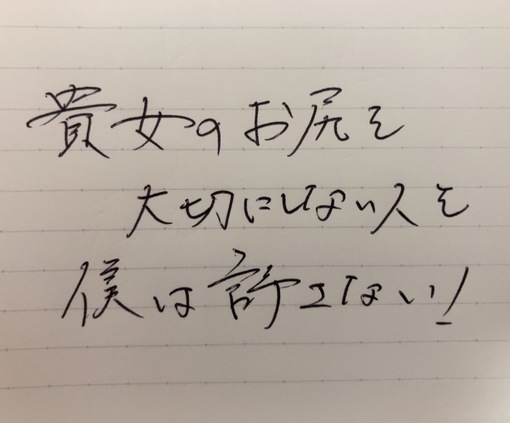 貴女のお尻を
大切にしない人を
僕は許さない!